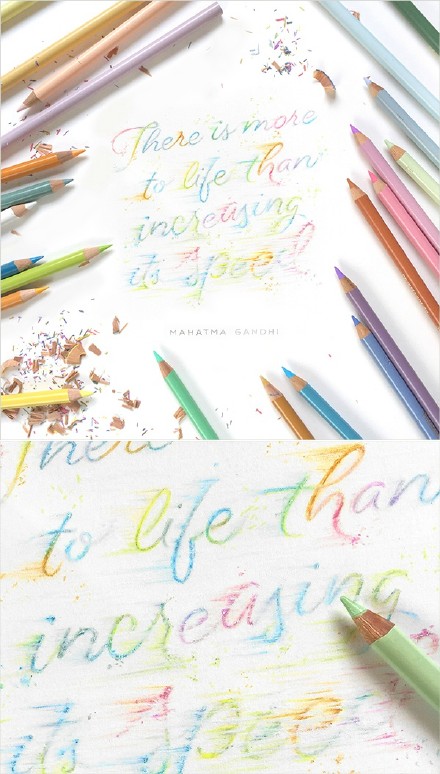 There is more
to life than
increasing
its speed
MAHATMA GANDHI
There
to life than
increasing
its spee